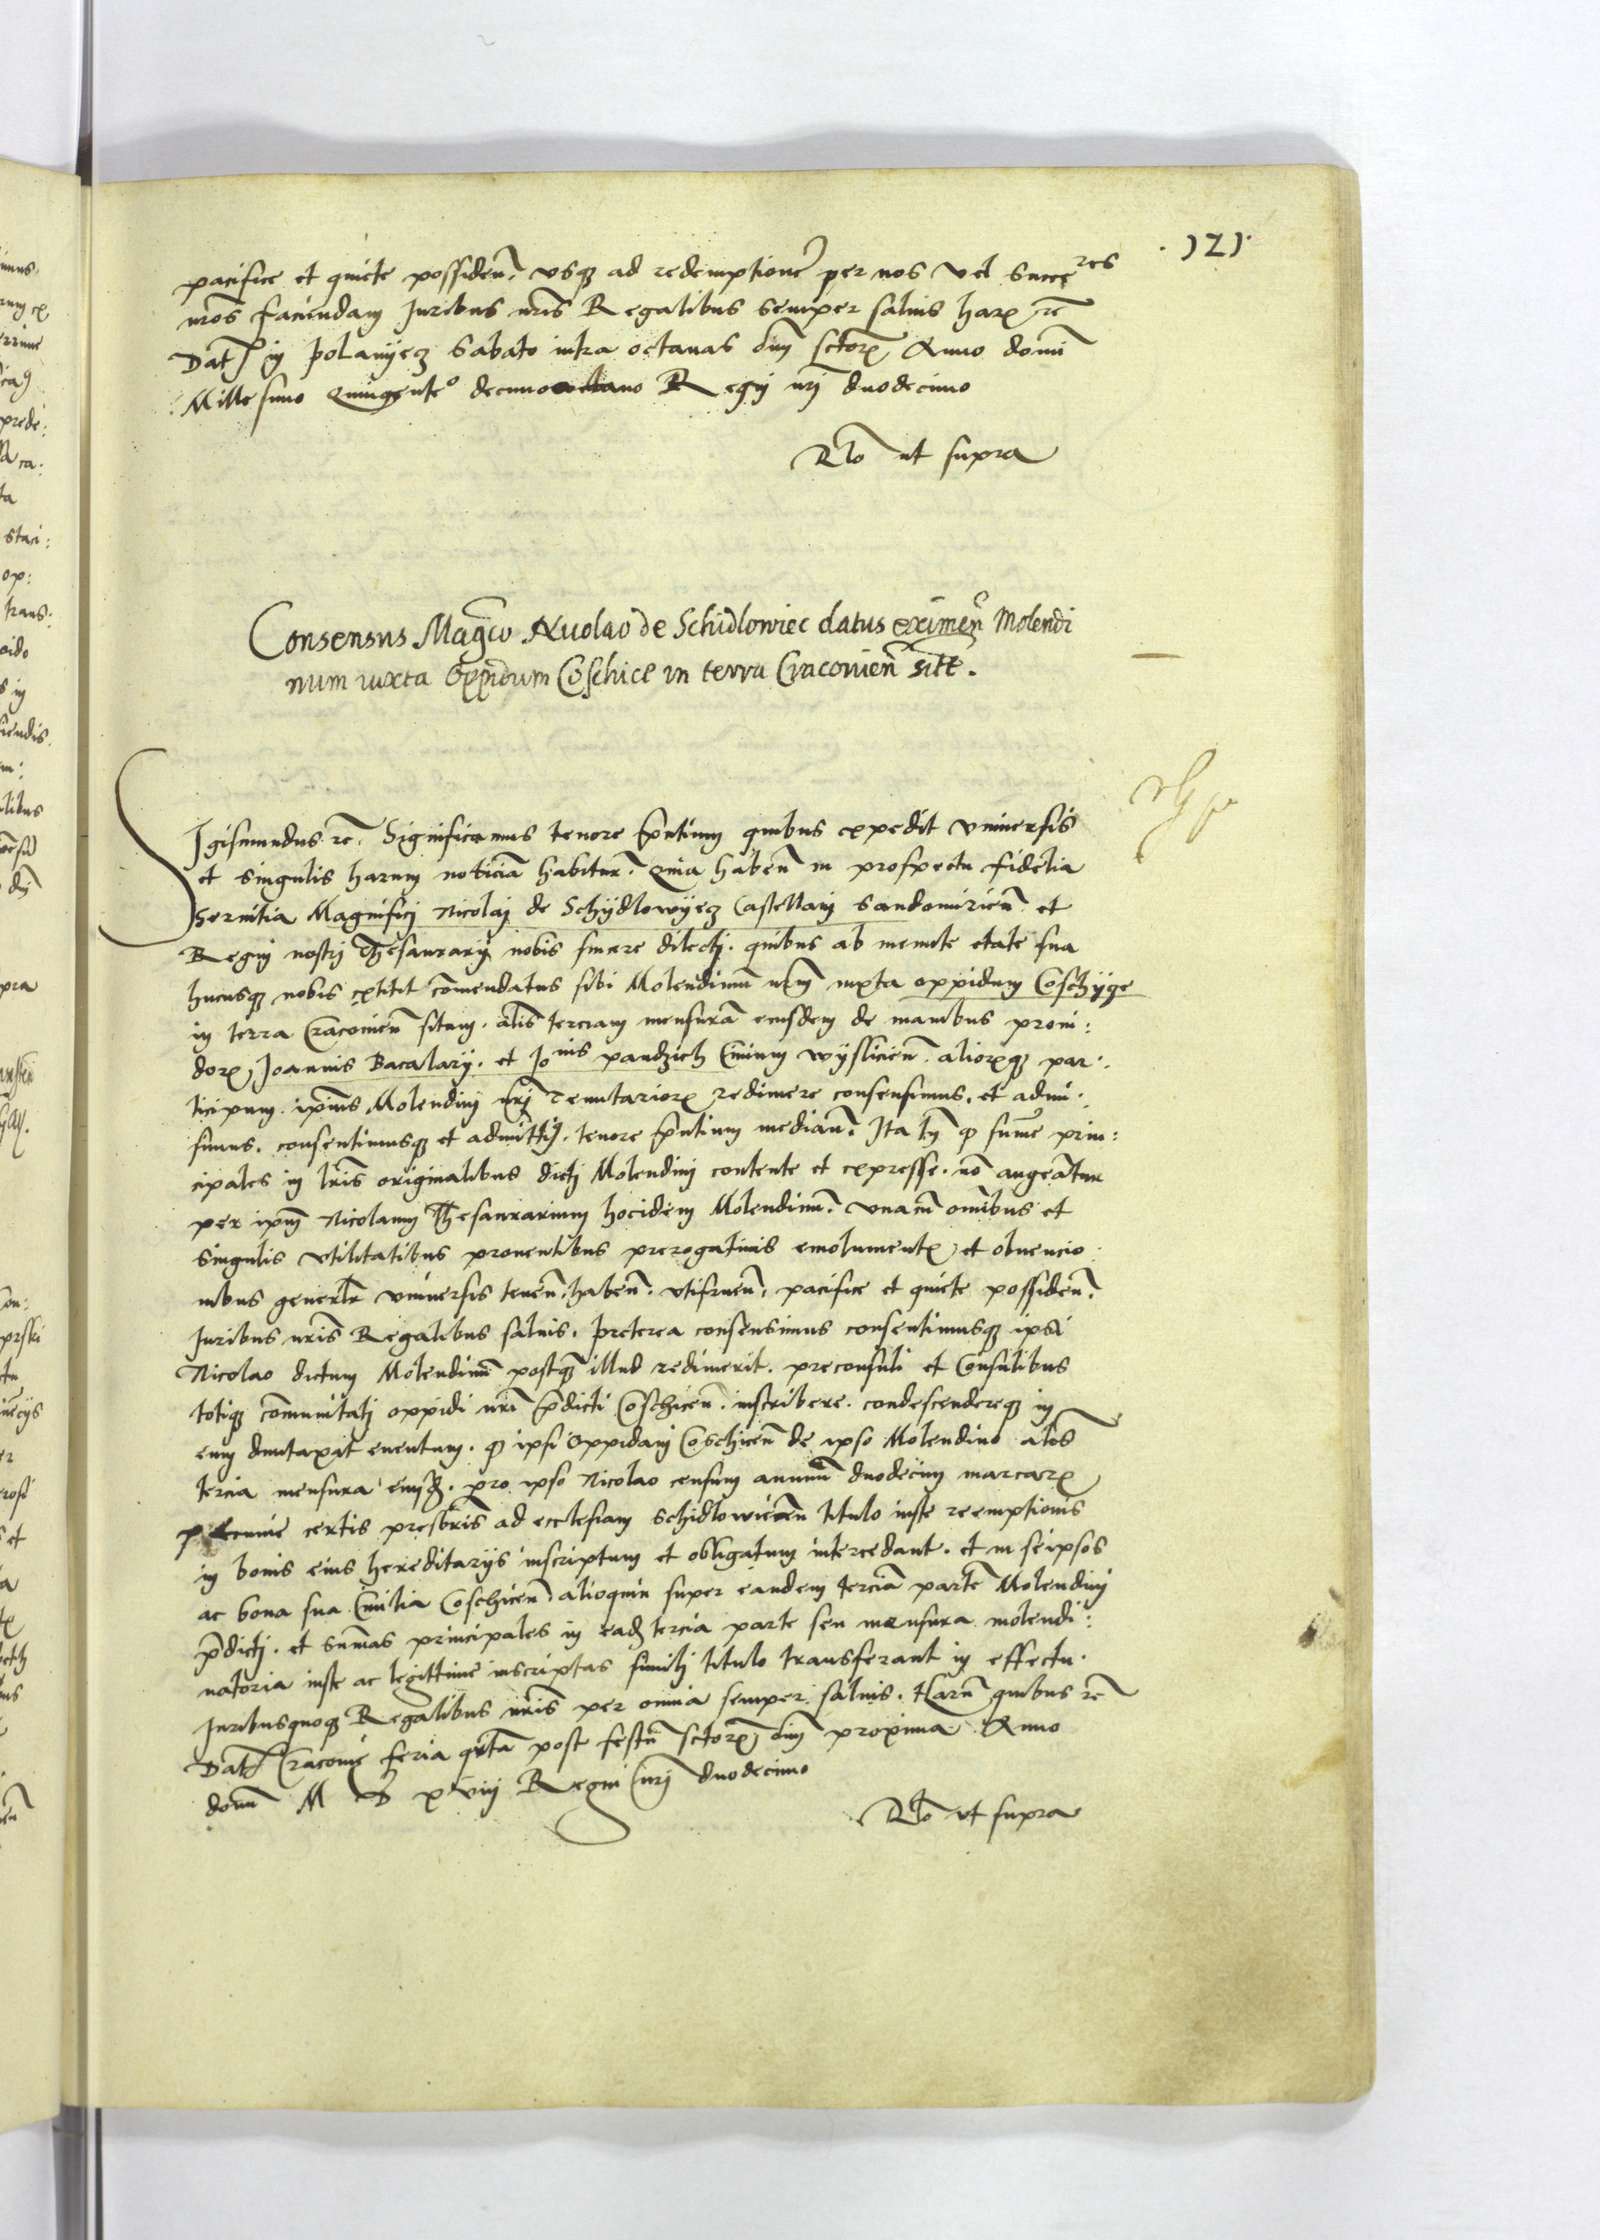 .121.
pacifice et quiete possiden̄. usq̄ ad redemptionē per nos vel Succeres
nr̄os faciendam Juribus nr̄is Regalibus semper salvis harꝝ rc̄
Dat̄ in Polanyecz Sabato infra octavas Om̄ Sctorꝝ Anno domī
Millesimo Quingente⁰ decimo octavo Regnj nrī duodecimo
Rlo ut supra
Consensus Magco Nicolao de Schidlowiec datus eximen̄ Molendi
num iuxta Oppidum Coschice in terra Cracovien̄ sitū.
Sigismundus rc̄. Significamus tenore pn̄tium quibus expedit Universis
et singulis harum noticiā habitur̄. Quia haben̄ in prospectu fidelia
Servitia Magnificj Nicolaj de Schydlowyecz Castellanj Sandomirien̄ et
Regnj nostrj Thesaurarij nobis sincere dilectj. quibus ab ineunte etate sua
hucusq̄ nobis extitit cōmendatus sibi Molendinū nr̄m iuxta oppidum Coschyze
in terra Cracovien̄ situm. alīs terciam mensurā eiusdem de manibus provi:
dorꝝ Joannis Bacalarij. et Jonis pandzich Civium Wyslicien̄. aliorꝝq̄ par:
ticipum. ipsius Molendinj nrj Tenutariorꝝ redimere consensimus. et admi:
simus. consentimusq̄ et admittiꝫ. tenore pn̄tium median̄. Ita tn̄ q̄ sum̄e prin:
cipales in lr̄is originalibus dictj Molendinj contente et expresse. nō augeantur
per ipm̄ Nicolaum Thesaurarium hocidem Molendinū. unacū om̄ibus et
singulis utilitatibus proventibus prerogativis emolumentꝫ et obvencio:
nibus generlr̄ universis tenen̄. haben̄. utifruen̄. pacifice et quiete possiden̄.
Juribus nr̄is Regalibus salvis. Preterea consensimus consentimusq̄ ipsi
Nicolao dictum Molendinū postq̄ illud redimerit. preconsuli et Consulibus
totiq̄ cōmunitatj oppidi nrī pdicti Coschicen̄. inscribere. condescendereq̄ in
eum duntaxat eventum. q̄ ipsi Oppidanj Coschicen̄ de ipso Molendino alīs
tercia mensura eiusꝫ. pro ipso Nicolao censum annuū duodecim marcarꝝ
pecunie certis presbr̄is ad ecclesiam Schidlowicen̄ titulo iuste reemptionis
in bonis eius hereditarijs inscriptum et obligatum intercedant. et in seipsos
ac bona sua Civilia Coschicen̄ alioquin super eandem terciā partē Molendinj
pdictj. et Sum̄as principales in eadꝫ tercia parte seu mensura molendi:
natoria iuste ac legittime inscriptas similj titulo transferant in effectu.
Juribusquoq̄ Regalibus nr̄is per omnia semper salvis. Harū quibus rc̄
Dat̄ Cracovie feria qrta post festū Sctorꝝ Om̄ proxima Anno
domī M D xviij Regni nrj duodecimo
Rlo ut supra